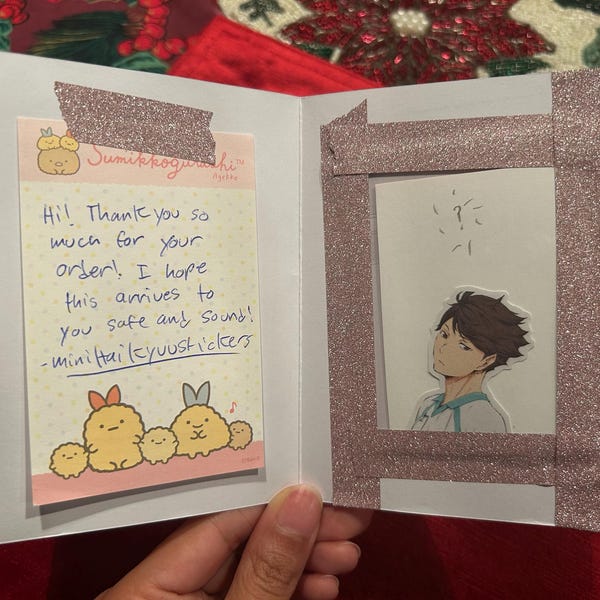 Sumikkogurashi™
Agekko
Hi! Thank you so
much for your
order! I hope
this arrives to
you safe and sound!
-miniHaikyuustickers
?